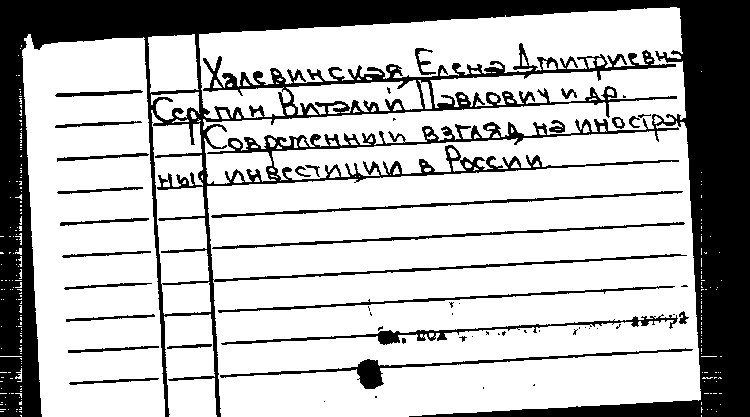 Халевинская, Елена Дмитриевна
Серегин, Виталий Павлович и др.
Современный взгляд на иностран
ные инвестиции в России.
См. под автора